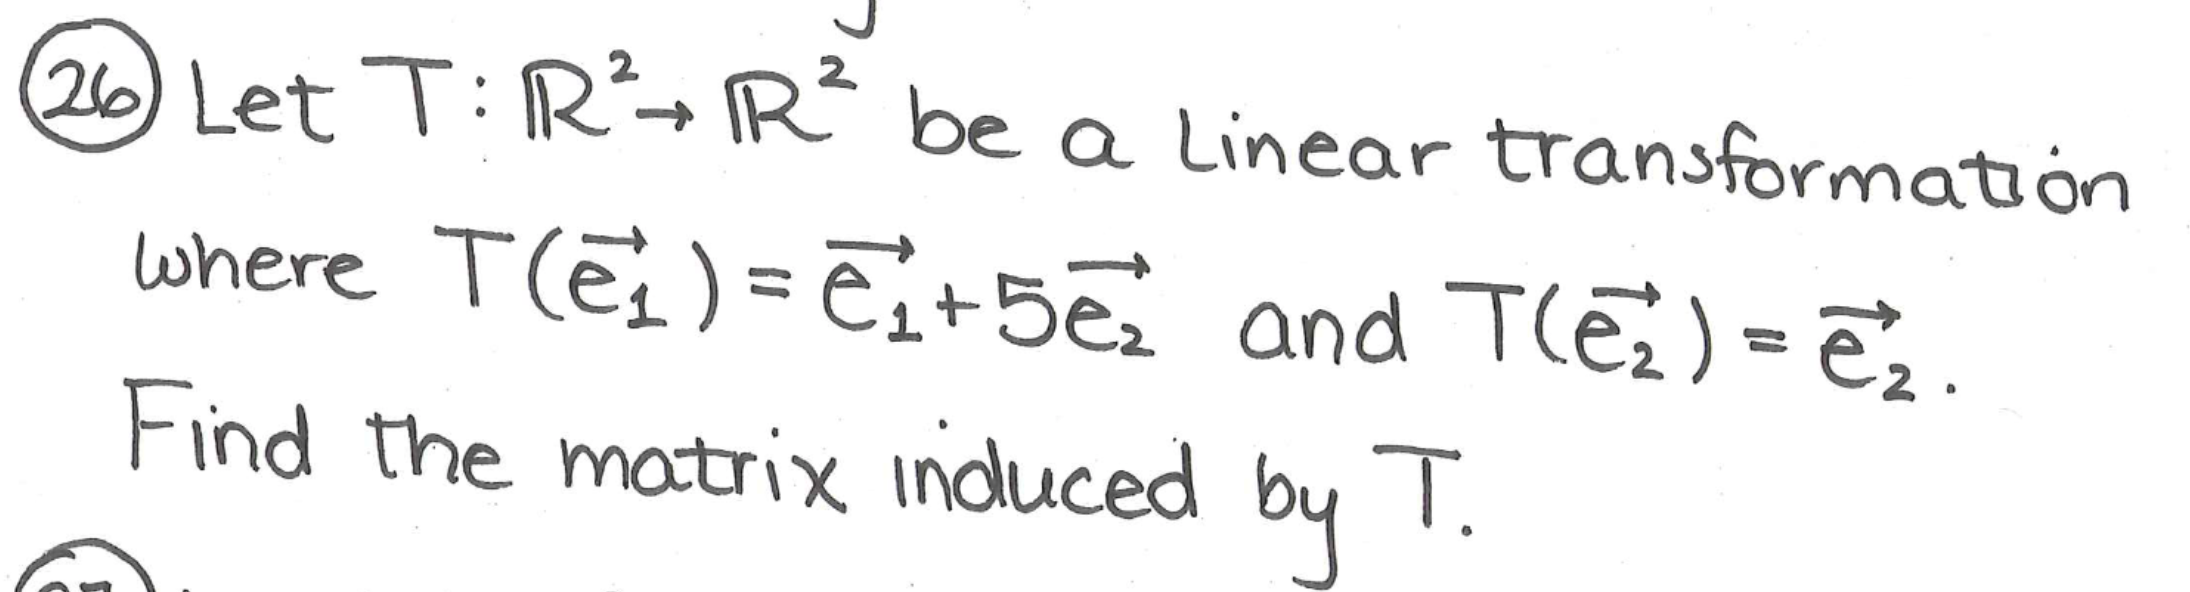 26 Let T: ℝ² → ℝ² be a linear transformation
where T(e⃗₁) = e⃗₁ + 5e⃗₂ and T(e⃗₂) = e⃗₂.
Find the matrix induced by T.